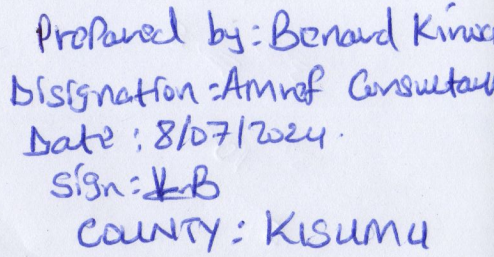 Prepared by: Benard
Disignation: Amref
Date: 8/07/2024.
Sign: KB
COUNTY: KISUMU